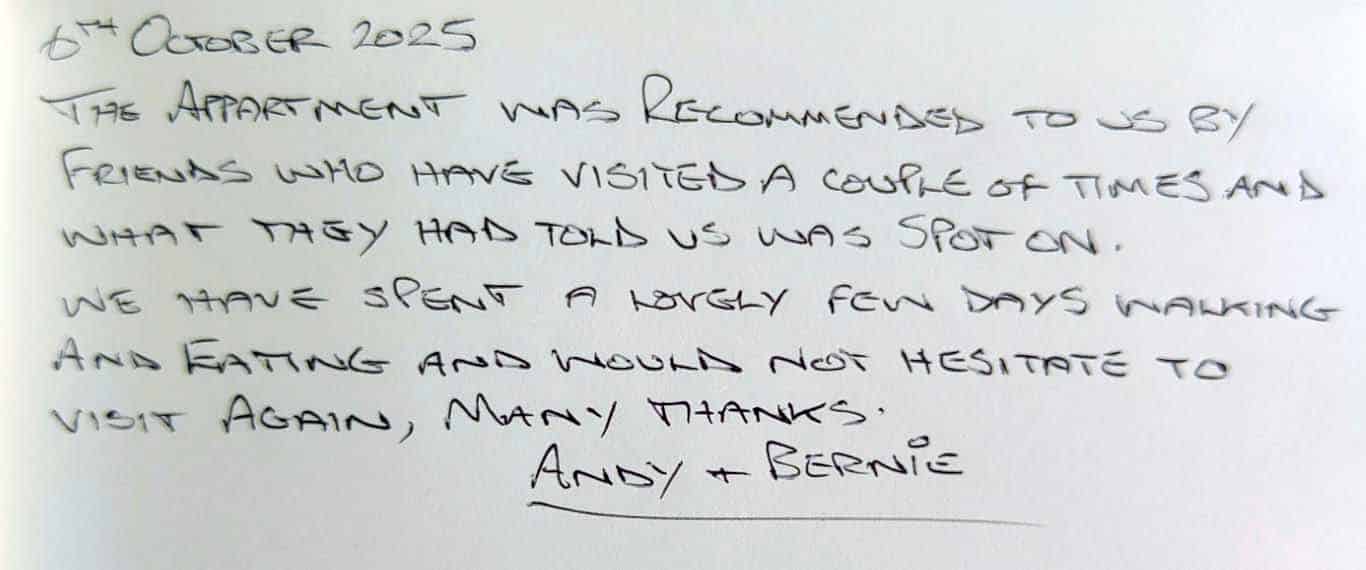 6TH OCTOBER 2025
THE APPARTMENT WAS RECOMMENDED TO US BY
FRIENDS WHO HAVE VISITED A COUPLE OF TIMES AND
WHAT THEY HAD TOLD US WAS SPOT ON.
WE HAVE SPENT A LOVELY FEW DAYS WALKING
AND EATING AND WOULD NOT HESITATE TO
VISIT AGAIN, MANY THANKS.
ANDY + BERNiE